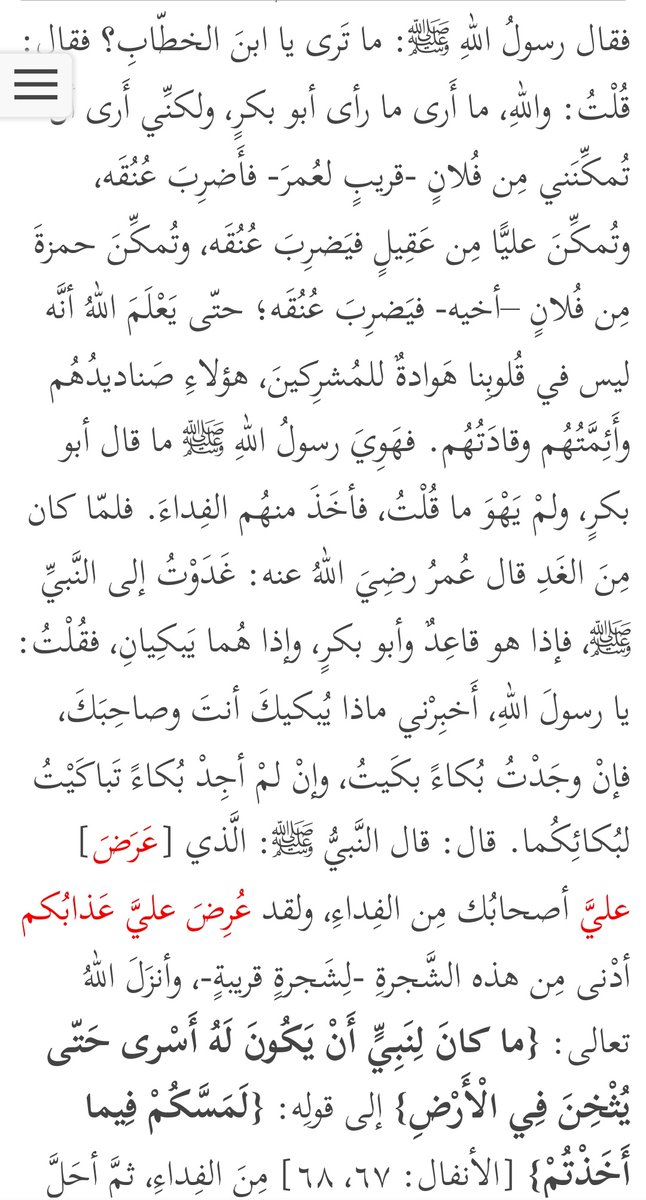 فقال رسولُ اللهِ ﷺ: ما تَرى يا ابنَ الخطّابِ؟ فقال:
قُلْتُ: واللهِ، ما أَرى ما رأى أبو بكرٍ، ولكنِّي أَرى
تُمكِّنَني مِن فُلانٍ -قريبٍ لعُمرَ- فأَضرِبَ عُنُقَه،
وتُمكِّنَ عليًّا مِن عَقِيلٍ فيَضرِبَ عُنُقَه، وتُمكِّنَ حمزةَ
مِن فُلانٍ –أخيه- فيَضرِبَ عُنُقَه؛ حتّى يَعْلَمَ اللهُ أنَّه
ليس في قُلوبِنا هَوادةٌ للمُشرِكينَ، هؤلاءِ صَناديدُهُم
وأَئِمَّتُهُم وقادَتُهُم. فهَوِيَ رسولُ اللهِ ﷺ ما قال أبو
بكرٍ، ولمْ يَهْوَ ما قُلْتُ، فأخَذَ منهُم الفِداءَ. فلمّا كان
مِنَ الغَدِ قال عُمرُ رضِيَ اللهُ عنه: غَدَوْتُ إلى النَّبيِّ
ﷺ، فإذا هو قاعِدٌ وأبو بكرٍ، وإذا هُما يَبكِيانِ، فقُلْتُ:
يا رسولَ اللهِ، أَخبِرْني ماذا يُبكيكَ أنتَ وصاحِبَكَ،
فإنْ وجَدْتُ بُكاءً بكَيتُ، وإنْ لمْ أجِدْ بُكاءً تَباكَيْتُ
لبُكائِكُما. قال: قال النَّبيُّ ﷺ: الَّذي [عَرَضَ]
عليَّ أصحابُك مِن الفِداءِ، ولقد عُرِضَ عليَّ عَذابُكم
أدْنى مِن هذه الشَّجرةِ -لِشَجرةٍ قريبةٍ-، وأنزَلَ اللهُ
تعالى: {ما كانَ لِنَبِيٍّ أَنْ يَكُونَ لَهُ أَسْرى حَتّى
يُثْخِنَ فِي الْأَرْضِ} إلى قولِه: {لَمَسَّكُمْ فِيما
أَخَذْتُمْ} [الأنفال: ٦٧، ٦٨] مِنَ الفِداءِ، ثمَّ أحَلَّ